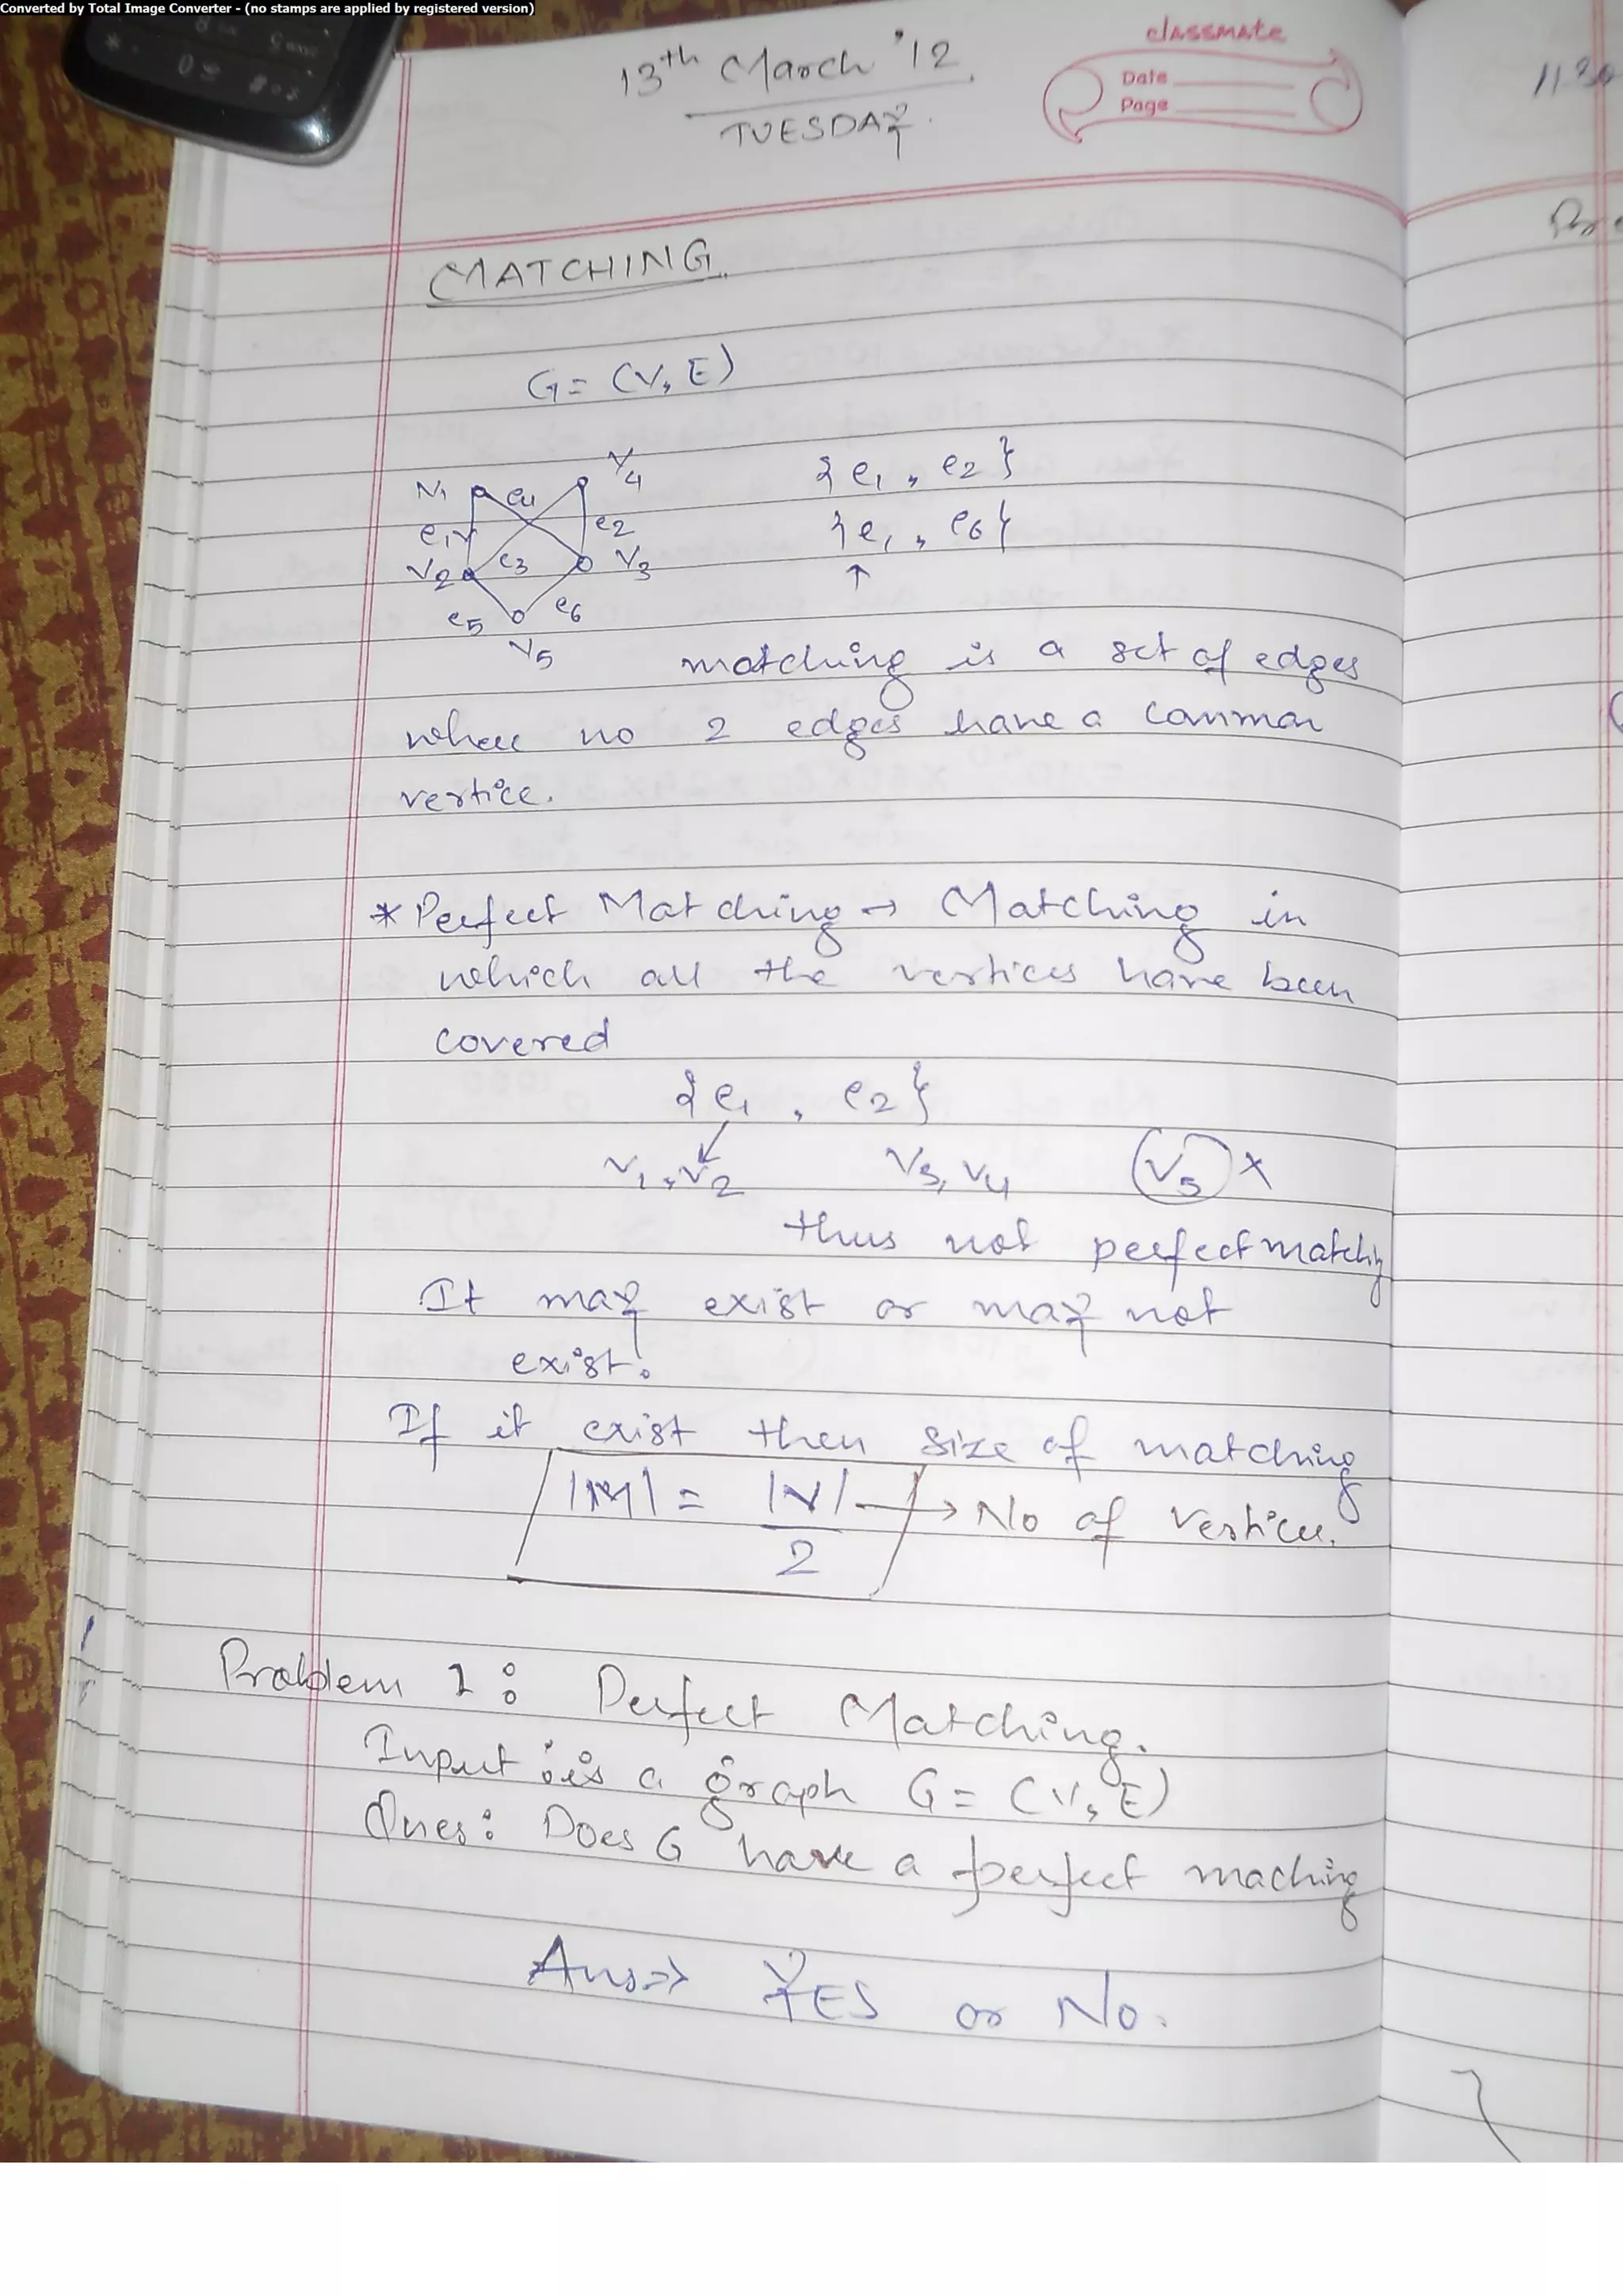 Converted by Total Image Converter - (no stamps are applied by registered version)
13th March '12
TUESDAY.
classmate
Date
Page
MATCHING.
G = (V, E)
V1 e4 V4 {e1, e2}
e1 e2 {e1, e6}
V2 e3 V3 ↑
e5 e6
V5
matching is a set of edges
where no 2 edges have a common
vertice.
* Perfect Matching → Matching in
which all the vertices have been
covered
{e1, e2}
V1, V2 V3, V4 V5 ×
thus not perfect matching
It may exist or may not
exist.
If it exist then size of matching
|M| = |V| → No of vertices.
2
Problem 1: Perfect Matching.
Input: is a graph G = (V, E)
Ques: Does G have a perfect maching
Ans ⇒ YES or No.